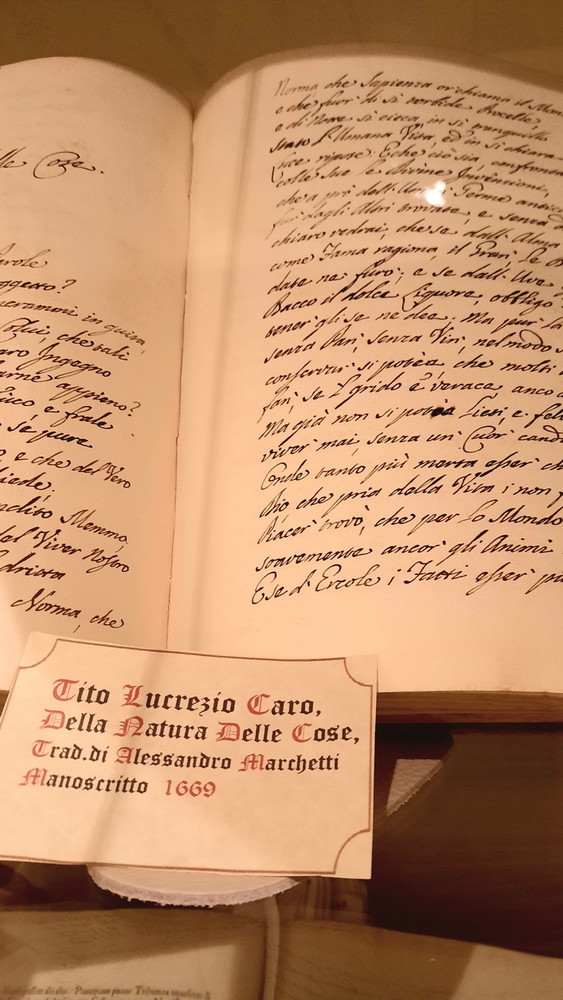 lle Coze.
Parole
ro Ingegno
arne appieno?
e frale
Se pure
e che del Vero
iede,
nclito Memmo,
del Viver Nostro
dritta
Norma, che
Norma che Sapienza or chiama il Mon
e che fuor di sì torbide Procelle,
e di Notte sì cieca, in sì tranquillo
Stato l'Umana Vita, ed in sì chiara
Luce ripose. E che ciò sia, confronta
colle sue le Divine Invenzioni,
che a prò dell'
fur dagli Altri trovate, e senza
chiaro vedrai, che se dall' Alma
come Fama ragiona, il Gran, le B
date ne furo; e se dall' Uve
Bacco il dolce Liquore, obbligo
tener gli se ne dee. Ma pur la
senza Pan, senza Vin, nel modo s
conservar si potèa, che molti
fan, se 'l grido è verace, anco a
Ma già non si potèa Lieti, e feli
viver mai, senza un Cuor candi
Onde tanto più merta esser ch
Dio, che pria della Vita i non f
Piacer trovò, che per lo Mondo
soavemente ancor gli Animi
E se d' Ercole i Fatti esser più
Tito Lucrezio Caro,
Della Natura Delle Cose,
Trad.di Alessandro Marchetti
Manoscritto 1669